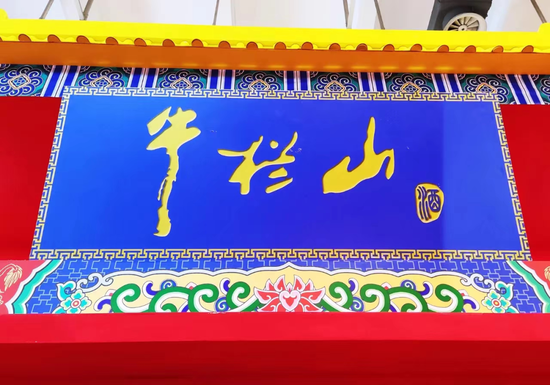 牛栏山
酒